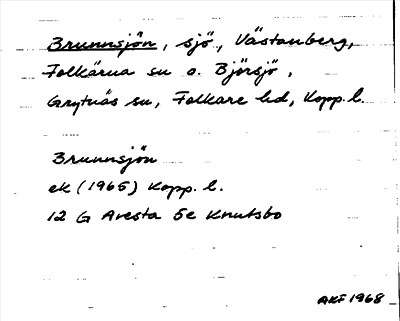 Brunnsjön, sjö, Västanberg,
Folkärna sn o. Björsjö,
Grytnäs sn, Folkare hd, Kopp. l.
Brunnsjön
ek (1965) Kopp. l.
12 G Avesta 5e Knutsbo
AKF 1968